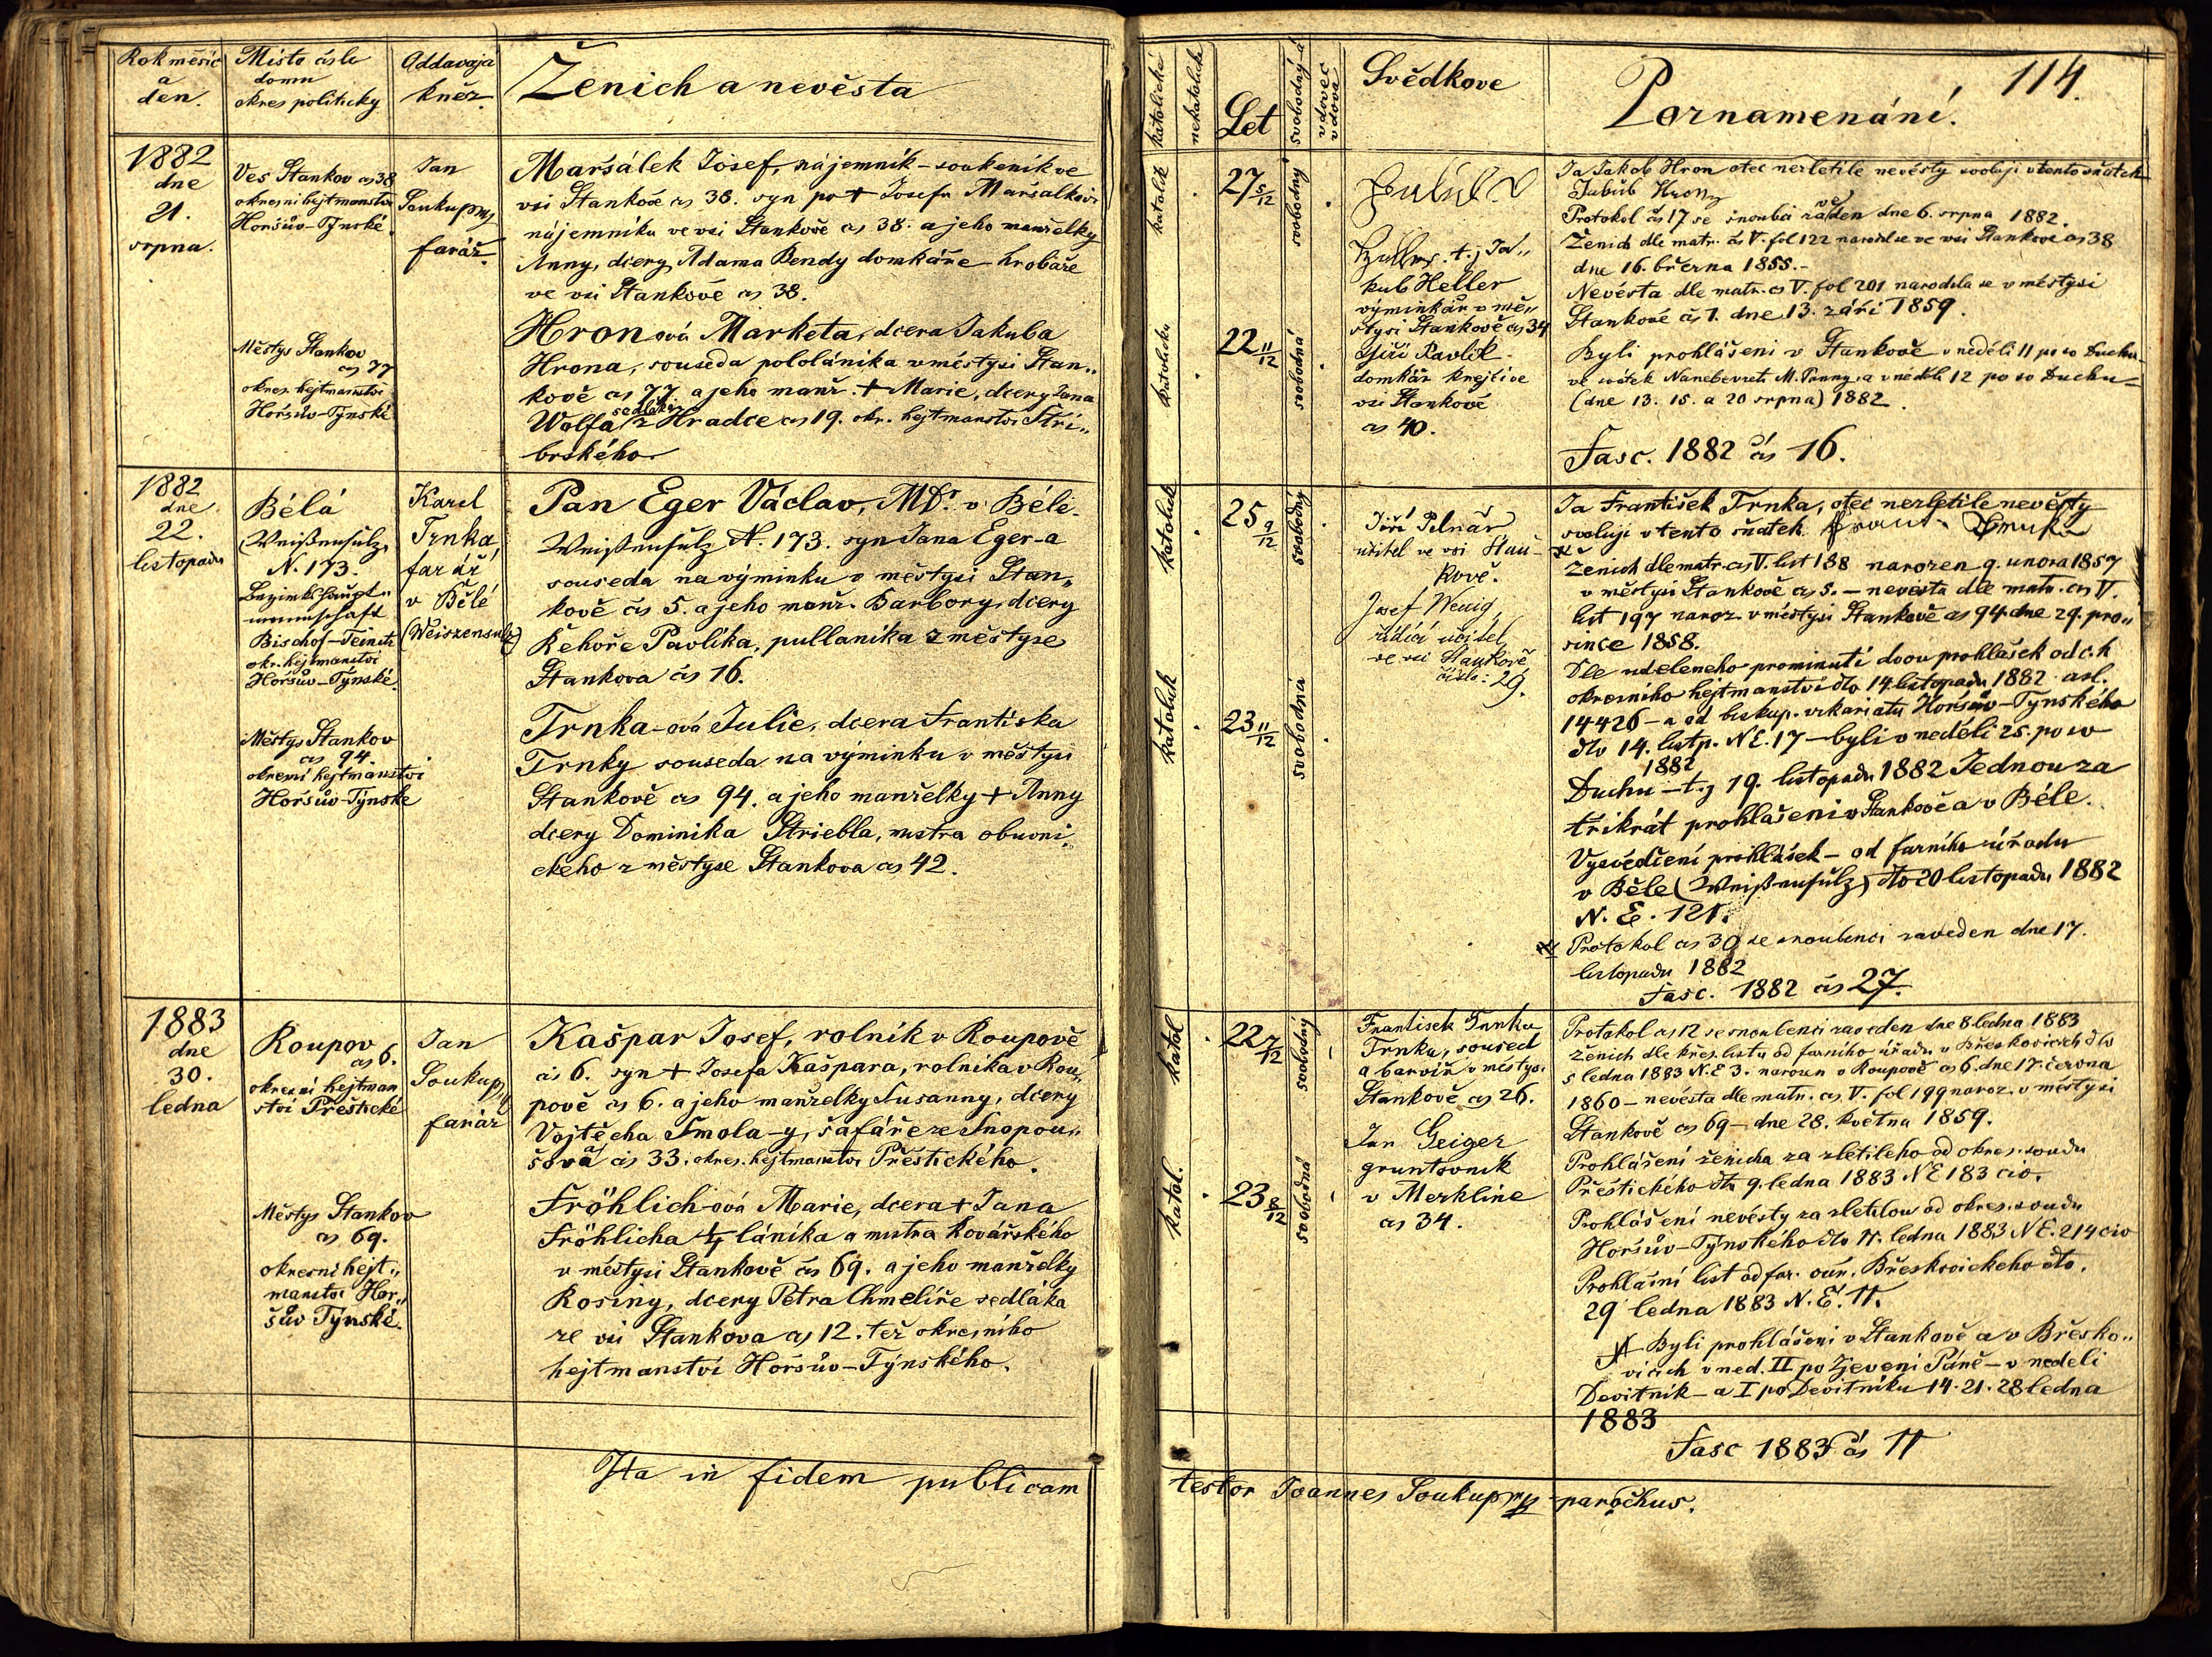 Rok měsíc
a
den.
Místo čislo
domu
okres politicky
Oddavají
kněz.
Ženich a nevěsta
1882
dne
21.
srpna.
Ves Stankov čs 38
okresní hejtmanstvi
Horšův-Týnské.
Jan
Soukup
farář.
Maršálek Josef, nájemník - soukeník ve
vsi Stankově čs 38. syn po + Josefu Maršalkovi
nájemníku ve vsi Stankově čs 38. a jeho manželky
Anny, dcery Adama Bendy domkáře - hrobaře
ve vsi Stankově čs 38.
Městys Stankov
čs 77
okres. hejtmanství
Horšův-Týnské
Hronová Marketa, dcera Jakuba
Hrona, souseda pololánika v městysi Stan„
kově čs 77. a jeho manž. + Marie, dcery Jana
Wolfa sedláka z Hradce čs 19. okr. hejtmanstvi Stří„
brského.
1882
dne
22.
listopadu
Bélá
(Weißensulz
N. 173.
Bezirkshaupt„
mannschaft
Bischof-Teinitz
okr. hejtmanství
Horšův-Týnské.
Karel
Trnka,
farář
v Bělé
(Weiszensulz)
Pan Eger Václav, MDr. v Béle-
Weißensulz N. 173. syn Jana Eger-a
souseda na výminku v městysi Stan„
kově čs 5. a jeho manž. Barbory, dcery
Řehoře Pavlíka, pullanika z městyse
Stankova čs 16.
Městys Stankov
čs 94.
okresní hejtmanstvi
Horšův-Týnské
Trnka-ová Julie, dcera Františka
Trnky souseda na výminku v městysi
Stankově čs 94. a jeho manželky + Anny
dcery Dominika Striebla, mistra obuvni„
ckého z městyse Stankova čs 42.
1883
dne
30.
ledna
Roupov
čs 6.
okresní hejtman
stvi Přestické
Jan
Soukup
farář
Kašpar Josef, rolník v Roupově
čs 6. syn + Josefa Kašpara, rolníka v Rou„
pově čs 6. a jeho manželky Susanny, dcery
Vojtěcha Smola-y, šafáře ze Snopou„
šova čs 33. okres. hejtmanstvi Přestického.
Městys Stankov
čs 69.
okresní hejt„
manstvi Hor„
šův Týnské.
Fröhlich-ová Marie, dcera + Jana
Fröhlicha 1/4 láníka a mistra kovářského
v městysi Stankově čs 69. a jeho manželky
Rosiny, dcery Petra Chmelíře sedláka
ze vsi Stankova čs 12. též okresního
hejtmanství Horšův-Týnského.
Ita in fidem publicam
katolické
nekatolické
Let
svobodný
vdovec
vdova
Svědkove
Poznamenání.
114.
katolík
27 5/12
svobodný
t. j. Ja„
kub Heller
výminkář v mě„
stysi Stankově čs 34
Jiří Pavlik
domkář krejčí ve
vsi Stankově
čs 40.
katolička
22 11/12
svobodná
Ja Jakob Hron otec nezletilé nevěsty svoluji v tento sňatek
Jakub Hron
Protokol čs 17 se snoubci zaveden dne 6. srpna 1882.
Ženich dle matr. čs V. fol 122 narodil se ve vsi Stankově čs 38
dne 16. března 1855.-
Nevěsta dle matr. čs V. fol 201 narodila se v městysi
Stankově čs 1. dne 13. září 1859.
Byli prohlášeni v Stankově v neděli 11 po sv Duchu-
ve svátek Nanebevzetí M. Panny, a v neděli 12 po sv Duchu-
(dne 13. 15. a 20 srpna) 1882.
Fasc. 1882 čs 16.
katolík
25 9/12
svobodný
Jiří Pelnář
učitel ve vsi Stan-
kově.
Josef Wenig,
řídící učitel
ve vsi Stankově
číslo: 29.
katolick
23 11/12
svobodná
Ja František Trnka, otec nezletilé nevěsty
svoluji v tento sňatek
Ženich dle matr. čs V. list 188 narozen 9. unora 1857
v městysi Stankově čs 5. - nevěsta dle matr. čs V.
list 197 naroz. v městysi Stankově čs 94 dne 29. pro„
since 1858.
Dle uděleného prominutí dvou prohlášek od c. k
okresního hejtmanství dto 14 listopadu 1882 asl.
14426 - a od biskup. vikariatu Horšův-Týnského
dto 14. listp. 1882 N E. 17 - byli v neděli 25. po sv
Duchu - t. j 19. listopadu 1882 Jednou za
třikrát prohlášeni v Stankově a v Béle.
Vysvědčení prohlášek - od farního úřadu
v Béle (Weißensulz) dto 20 listopadu 1882
N. E. 121.
Protokol čs 30 se snoubenci zaveden dne 17.
listopadu 1882
Fasc. 1882 čs 27.
katol
22 7/12
svobodný
František Trnka
Trnka, soused
a barvíř v městysi
Stankově čs 26.
Jan Geiger
gruntovník
v Merklíně
čs 34.
katol.
23 8/12
svobodná
Protokol čs 12 se snoubenci zaveden dne 8 ledna 1883
Ženich dle křes. listu od farního úřadu v Březkovicích dto
5 ledna 1883 N. E 3. narozen v Roupově čs 6. dne 17. června
1860 - nevěsta dle matr. čs V. fol 199 naroz. v městysi
Stankově čs 69 - dne 28. května 1859.
Prohlášení ženicha za zletilého od okres. soudu
Přestického dto 9. ledna 1883 N E 183 civ.
Prohlášení nevěsty za zletilou od okres. soudu
Horšův-Týnského dto 11. ledna 1883 N E. 214 civ
Prohlašní list od far. ouř. Břeskovického dto.
29 ledna 1883 N. E. 11.
Byli prohlášeni v Stankově a v Břesko„
vicích v ned. II po Zjevení Páně - v neděli
Devitník - a I po Devitníku 14. 21. 28 ledna
1883
Fasc 1883 čs 11
testor Joannes Soukup parochus.